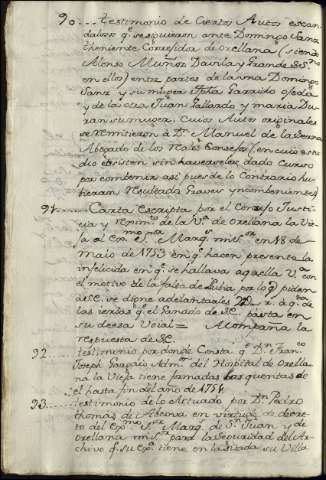 90.... testimonio de Ciertos Autos escan
dalosos q.e se siguieron ante Domingo Sanz
theniente Corregidor de Orellana (siendo
Alonso Muñoz Davila y Granda
en ellos) entre partes de la una Domingo
Sanz y su muger
y de la otra Juan Gallardo y maria Du
ran su muger. Cuios Autos originales
se remitieron à D.n Manuel de la
Abogado de los R.ales Consejos, en cuio estu
dio existen sin haverseles dado Curso
por combenir asi pues de lo Contrario hu
vieran Resultado Graves yncombenientes
91...... Carta escripta por el Consejo Justi
cia y regim.to de la V.a de Orellana la Vie
ja al Ex.mo S.r Marq.s mi S.r en 18 de
maio de 1753 en q.e hacen presente la
infelicidad en q.e se hallava aquella V.a con
el motivo de la falta de lluvia por lo q.e piden
à S.E. se digne adelantarles
las yervas q.e el Ganado de S.E. pasta en
su deesa Voial = Acompaña la
respuesta de S.E.
92.. testimonio por donde Consta q.e D.n Fran.co
Joseph Adm.r del Hospital de Orella
na la Vieja tiene tomadas las quentas de
el hasta fin del año de 1754
93.... testimonio de lo Actuado por D.n Pedro
thomas de en virtud de decre
to del Ex.mo S.r Marq. de S.n Juan y de
Orellana mi S.r para la seguridad del Ar
chivo q.e su Ex.a tiene en la citada su Villa